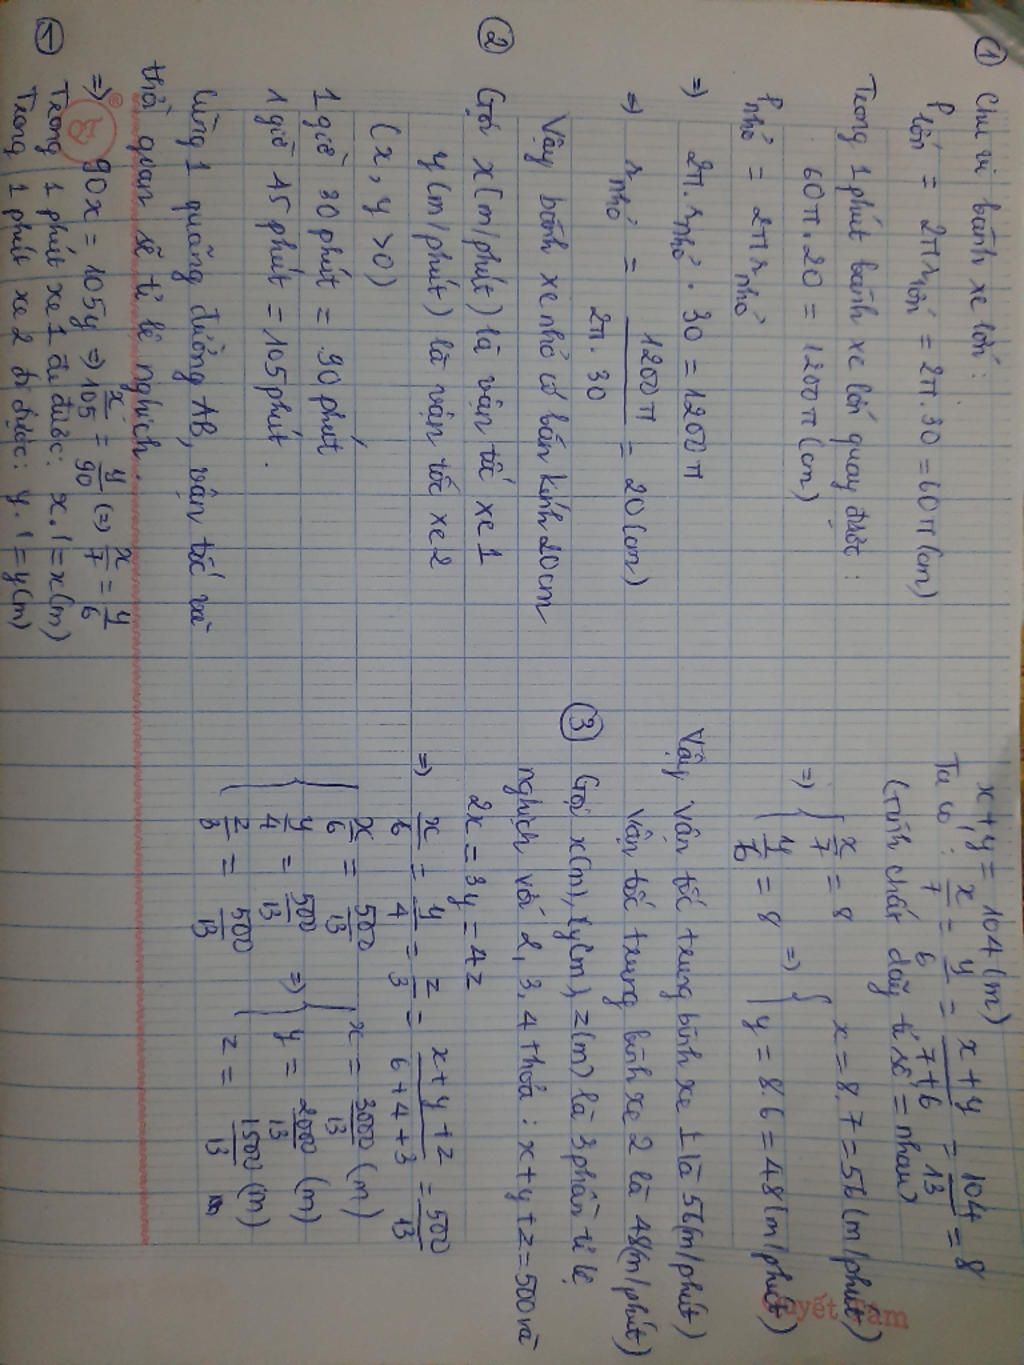 ① Chu vi bánh xe lớn:
P lớn = 2πr lớn = 2π.30 = 60π (cm)
Trong 1 phút bánh xe lớn quay được:
60π.20 = 1200π (cm)
P nhỏ = 2πr nhỏ
⇒ 2π.r nhỏ.30 = 1200π
⇒ r nhỏ = 1200π / 2π.30 = 20 (cm)
Vậy bánh xe nhỏ có bán kính 20cm
② Gọi x (m/phút) là vận tốc xe 1
y (m/phút) là vận tốc xe 2
(x, y > 0)
1 giờ 30 phút = 90 phút
1 giờ 45 phút = 105 phút.
Cùng 1 quãng đường AB, vận tốc và
thời gian sẽ tỉ lệ nghịch.
⇒ 90x = 105y ⇒ x/105 = y/90 (=) x/7 = y/6
Trong 1 phút xe 1 đi được: x.1 = x(m)
Trong 1 phút xe 2 đi được: y.1 = y(m)
x + y = 104 (m)
Ta có: x/7 = y/6 = x+y / 7+6 = 104/13 = 8
(tính chất dãy tỉ số = nhau)
⇒ { x/7 = 8 ⇒ { x = 8.7 = 56 (m/phút)
y/6 = 8 y = 8.6 = 48 (m/phút)
Vậy vận tốc trung bình xe 1 là 56 (m/phút)
vận tốc trung bình xe 2 là 48 (m/phút)
③ Gọi x(m), y(m), z(m) là 3 phần tỉ lệ
nghịch với 2, 3, 4 thoả: x+y+z = 500 và
2x = 3y = 4z
⇒ x/6 = y/4 = z/3 = x+y+z / 6+4+3 = 500/13
{ x/6 = 500/13 ⇒ { x = 3000/13 (m)
y/4 = 500/13 y = 2000/13 (m)
z/3 = 500/13 z = 1500/13 (m)
Quyết Tâm